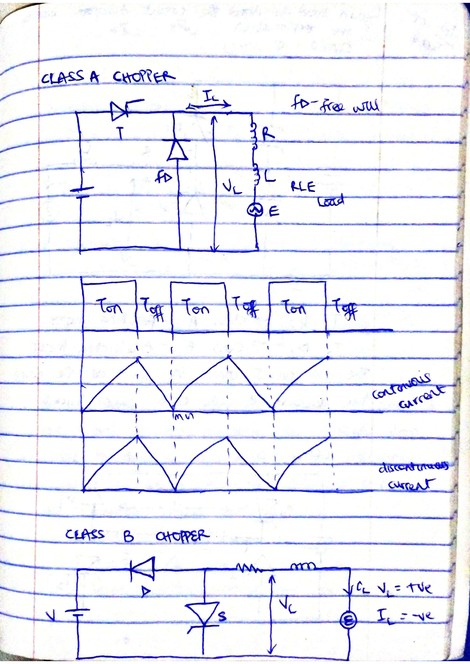 CLASS A CHOPPER
IL
FD - free will
T
R
FD
VL
L
RLE
Load
E
Ton Toff Ton Toff Ton Toff
continuous
current
min
discontinuous
current
CLASS B CHOPPER
D
V
S
VL
CL VL = +ve
E
IL = -ve